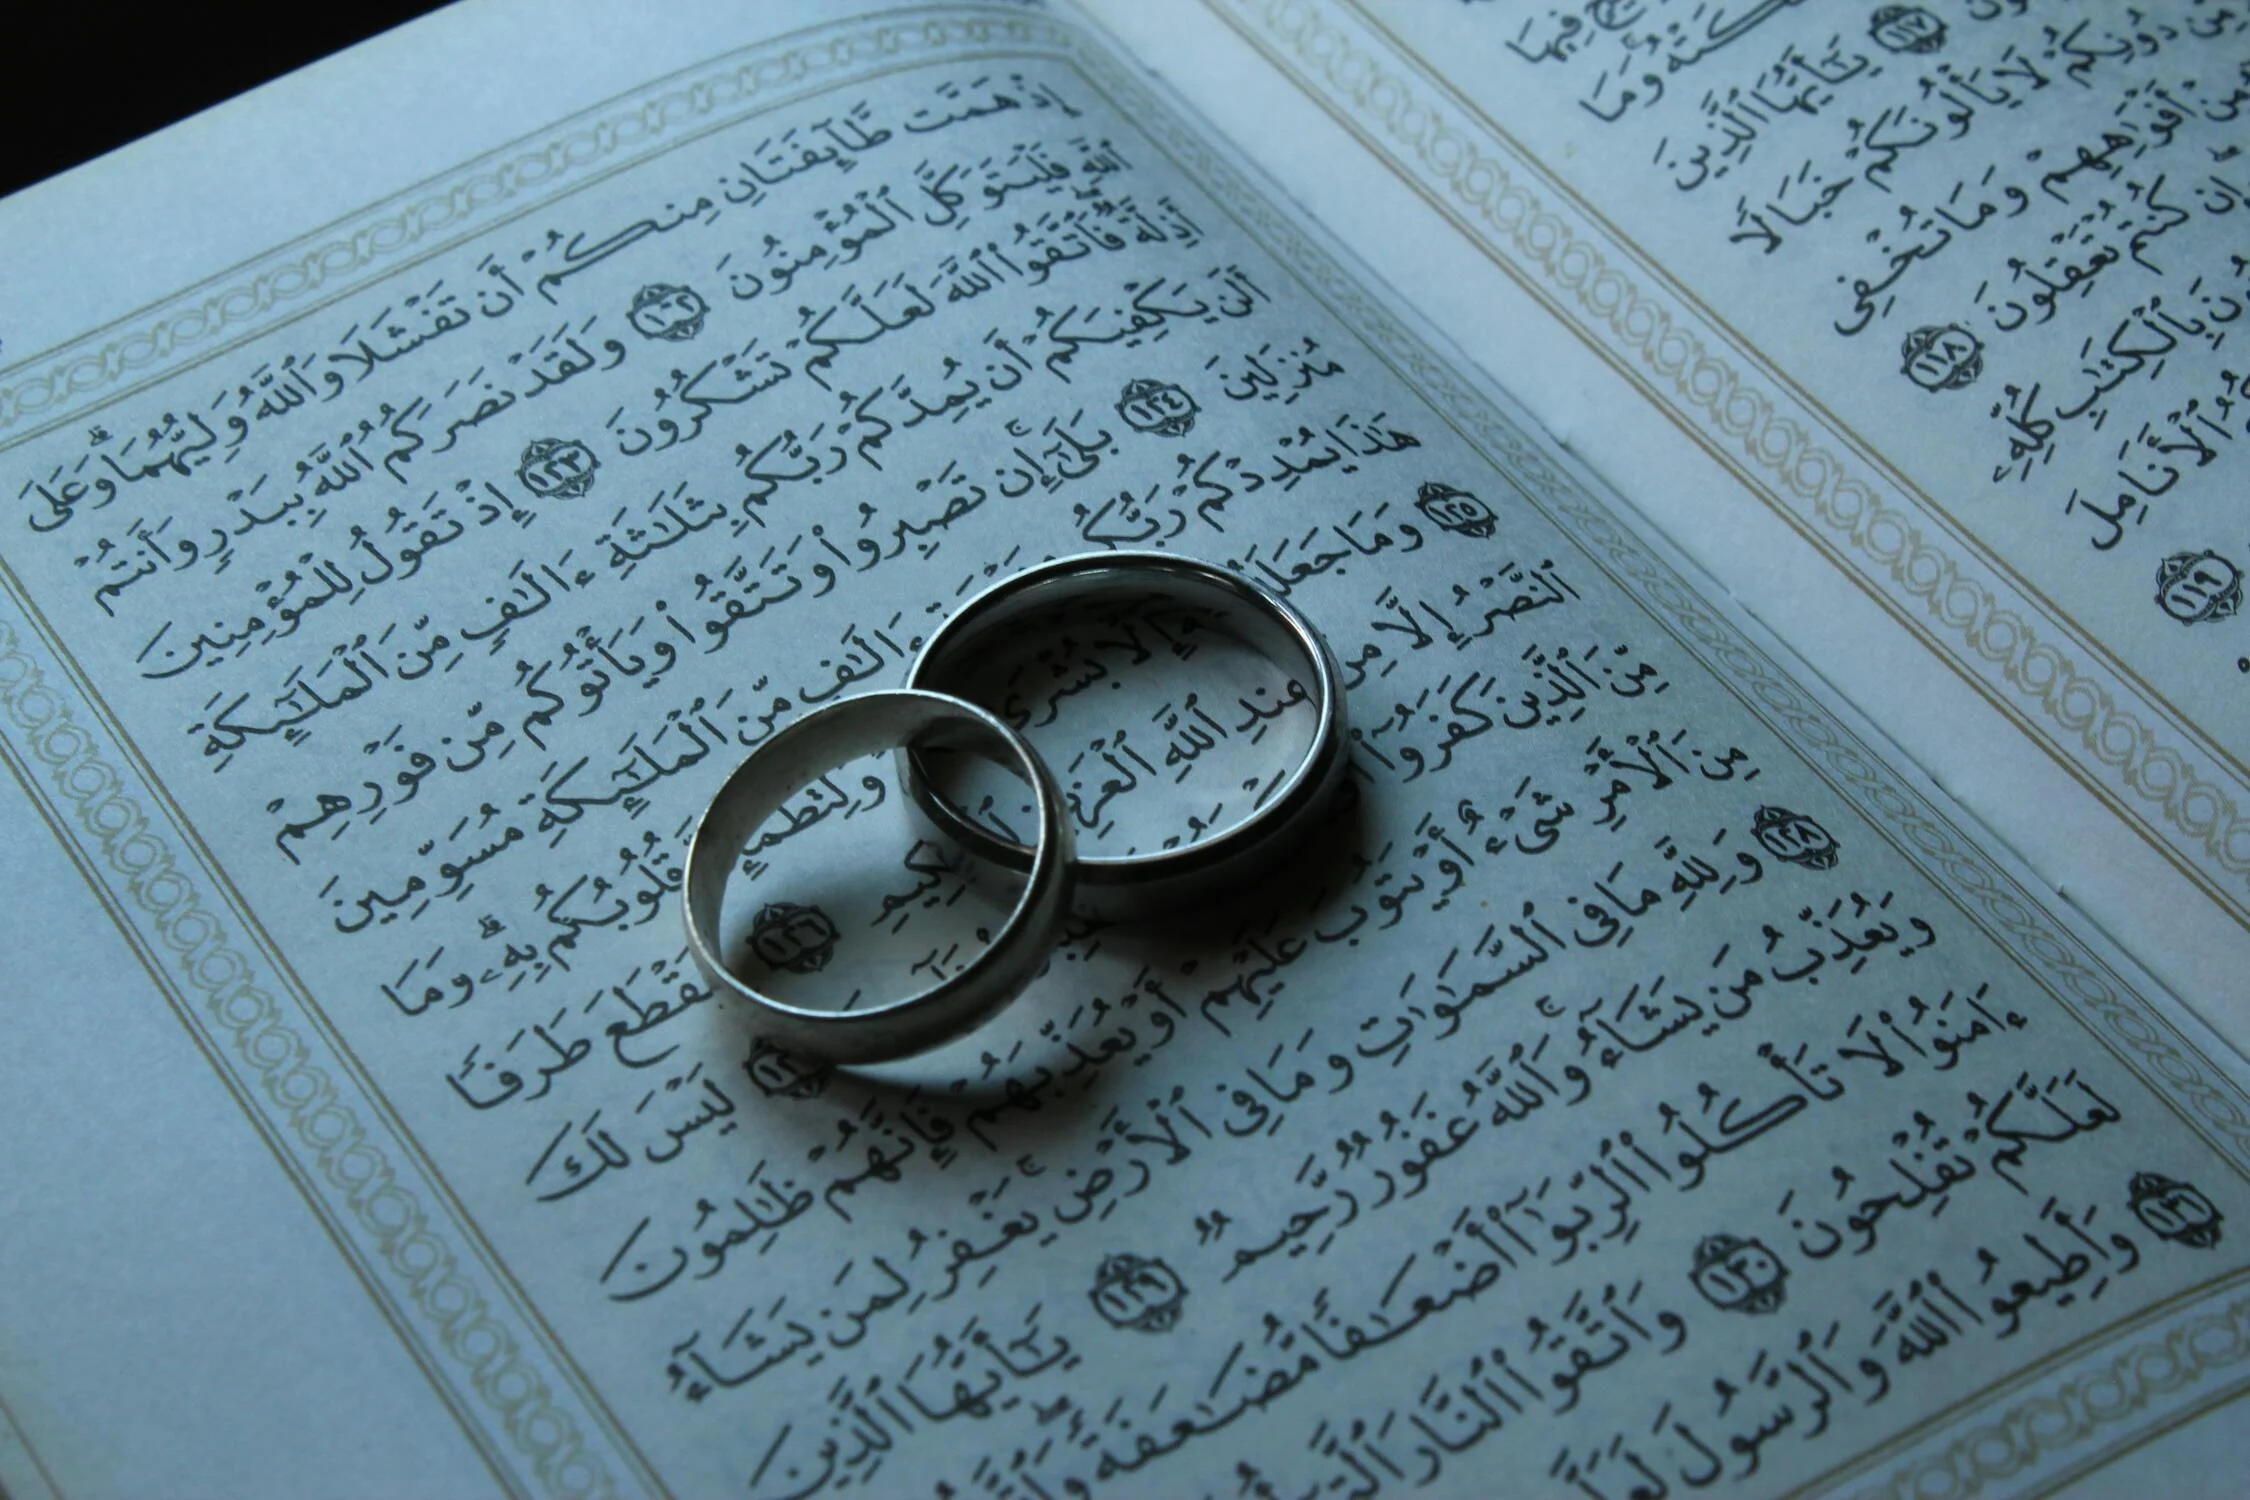 فِيهَا
وَمَا
١١٧ يَـٰٓأَيُّهَا ٱلَّذِينَ
دُونِكُمْ لَا يَأْلُونَكُمْ خَبَالًا
أَفْوَٰهِهِمْ وَمَا تُخْفِى
كُنتُمْ تَعْقِلُونَ ١١٨
بِٱلْكِتَـٰبِ كُلِّهِۦ
ٱلْأَنَامِلَ
١١٩
إِذْ هَمَّت طَّآئِفَتَانِ مِنكُمْ أَن تَفْشَلَا وَٱللَّهُ وَلِيُّهُمَا وَعَلَى
ٱللَّهِ فَلْيَتَوَكَّلِ ٱلْمُؤْمِنُونَ ١٢٢ وَلَقَدْ نَصَرَكُمُ ٱللَّهُ بِبَدْرٍ وَأَنتُمْ
أَذِلَّةٌ فَٱتَّقُوا۟ ٱللَّهَ لَعَلَّكُمْ تَشْكُرُونَ ١٢٣ إِذْ تَقُولُ لِلْمُؤْمِنِينَ
أَلَن يَكْفِيَكُمْ أَن يُمِدَّكُمْ رَبُّكُم بِثَلَـٰثَةِ ءَالَـٰفٍ مِّنَ ٱلْمَلَـٰٓئِكَةِ
مُنزَلِينَ ١٢٤ بَلَىٰٓ إِن تَصْبِرُوا۟ وَتَتَّقُوا۟ وَيَأْتُوكُم مِّن فَوْرِهِمْ
هَـٰذَا يُمْدِدْكُمْ رَبُّكُم ءَالَـٰفٍ مِّنَ ٱلْمَلَـٰٓئِكَةِ مُسَوِّمِينَ
١٢٥ وَمَا جَعَلَهُ إِلَّا بُشْرَىٰ وَلِتَطْمَئِنَّ قُلُوبُكُم بِهِۦ وَمَا
ٱلنَّصْرُ إِلَّا مِنْ عِندِ ٱللَّهِ ٱلْعَزِيزِ ٱلْحَكِيمِ ١٢٦ لِيَقْطَعَ طَرَفًا
مِّنَ ٱلَّذِينَ كَفَرُوٓا۟ ١٢٧ لَيْسَ لَكَ
مِنَ ٱلْأَمْرِ شَىْءٌ أَوْ يَتُوبَ عَلَيْهِمْ أَوْ يُعَذِّبَهُمْ فَإِنَّهُمْ ظَـٰلِمُونَ
١٢٨ وَلِلَّهِ مَا فِى ٱلسَّمَـٰوَٰتِ وَمَا فِى ٱلْأَرْضِ يَغْفِرُ لِمَن يَشَآءُ
وَيُعَذِّبُ مَن يَشَآءُ وَٱللَّهُ غَفُورٌ رَّحِيمٌ ١٢٩ يَـٰٓأَيُّهَا ٱلَّذِينَ
ءَامَنُوا۟ لَا تَأْكُلُوا۟ ٱلرِّبَوٰٓا۟ أَضْعَـٰفًا مُّضَـٰعَفَةً
لَعَلَّكُمْ تُفْلِحُونَ ١٣٠ وَٱتَّقُوا۟ ٱلنَّارَ ٱلَّتِىٓ
١٣١ وَأَطِيعُوا۟ ٱللَّهَ وَٱلرَّسُولَ